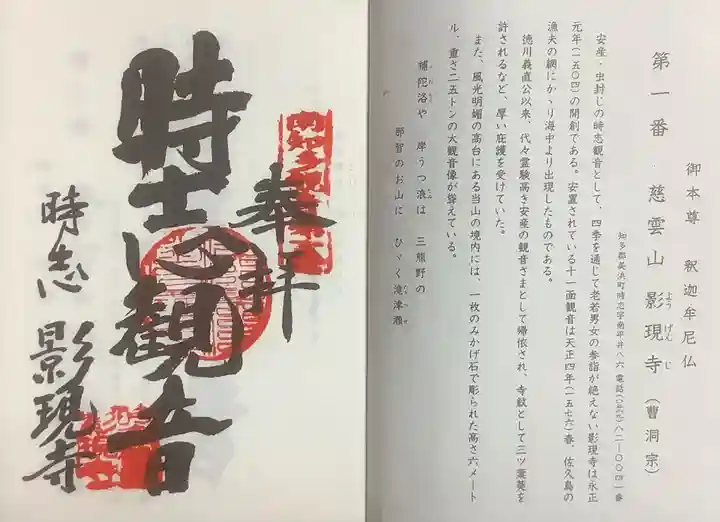 御本尊 釈迦牟尼仏
第一番 慈雲山 影現寺(曹洞宗)
よう げん じ
知多郡美浜町時志字南平井八六 電話(〇五六九)八二ー〇〇四一番
安産・虫封じの時志観音として、四季を通じて老若男女の参詣が絶えない影現寺は永正
元年(一五〇四)の開創である。安置されている十一面観音は天正四年(一五七六)春、佐久島の
漁夫の網にかゝり海中より出現したものである。
徳川義直公以来、代々霊験高き安産の観音さまとして帰依され、寺紋として三ツ葉葵を
許されるなど、厚い庇護を受けていた。
また、風光明媚の高台にある当山の境内には、一枚のみかげ石で彫られた高さ六メート
ル、重さ二五トンの大観音像が聳えている。
補陀洛や 岸うつ浪は 三熊野の
那智のお山に ひゞく滝津瀬
奉拝
時志観音
時志 影現寺